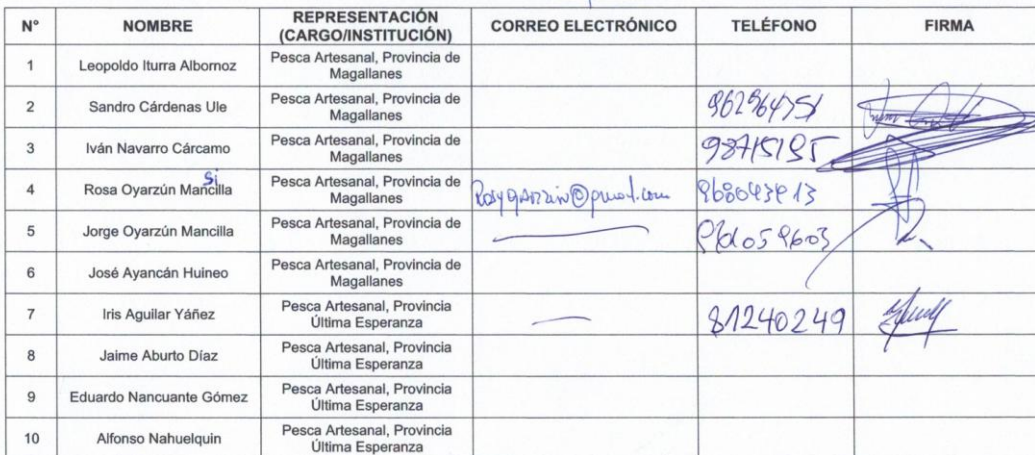 N° NOMBRE REPRESENTACIÓN (CARGO/INSTITUCIÓN) CORREO ELECTRÓNICO TELÉFONO FIRMA
1 Leopoldo Iturra Albornoz Pesca Artesanal, Provincia de Magallanes
2 Sandro Cárdenas Ule Pesca Artesanal, Provincia de Magallanes
3 Iván Navarro Cárcamo Pesca Artesanal, Provincia de Magallanes
si
4 Rosa Oyarzún Mancilla Pesca Artesanal, Provincia de Magallanes
5 Jorge Oyarzún Mancilla Pesca Artesanal, Provincia de Magallanes
6 José Ayancán Huineo Pesca Artesanal, Provincia de Magallanes
7 Iris Aguilar Yáñez Pesca Artesanal, Provincia Última Esperanza 81240249
8 Jaime Aburto Díaz Pesca Artesanal, Provincia Última Esperanza
9 Eduardo Nancuante Gómez Pesca Artesanal, Provincia Última Esperanza
10 Alfonso Nahuelquin Pesca Artesanal, Provincia Última Esperanza